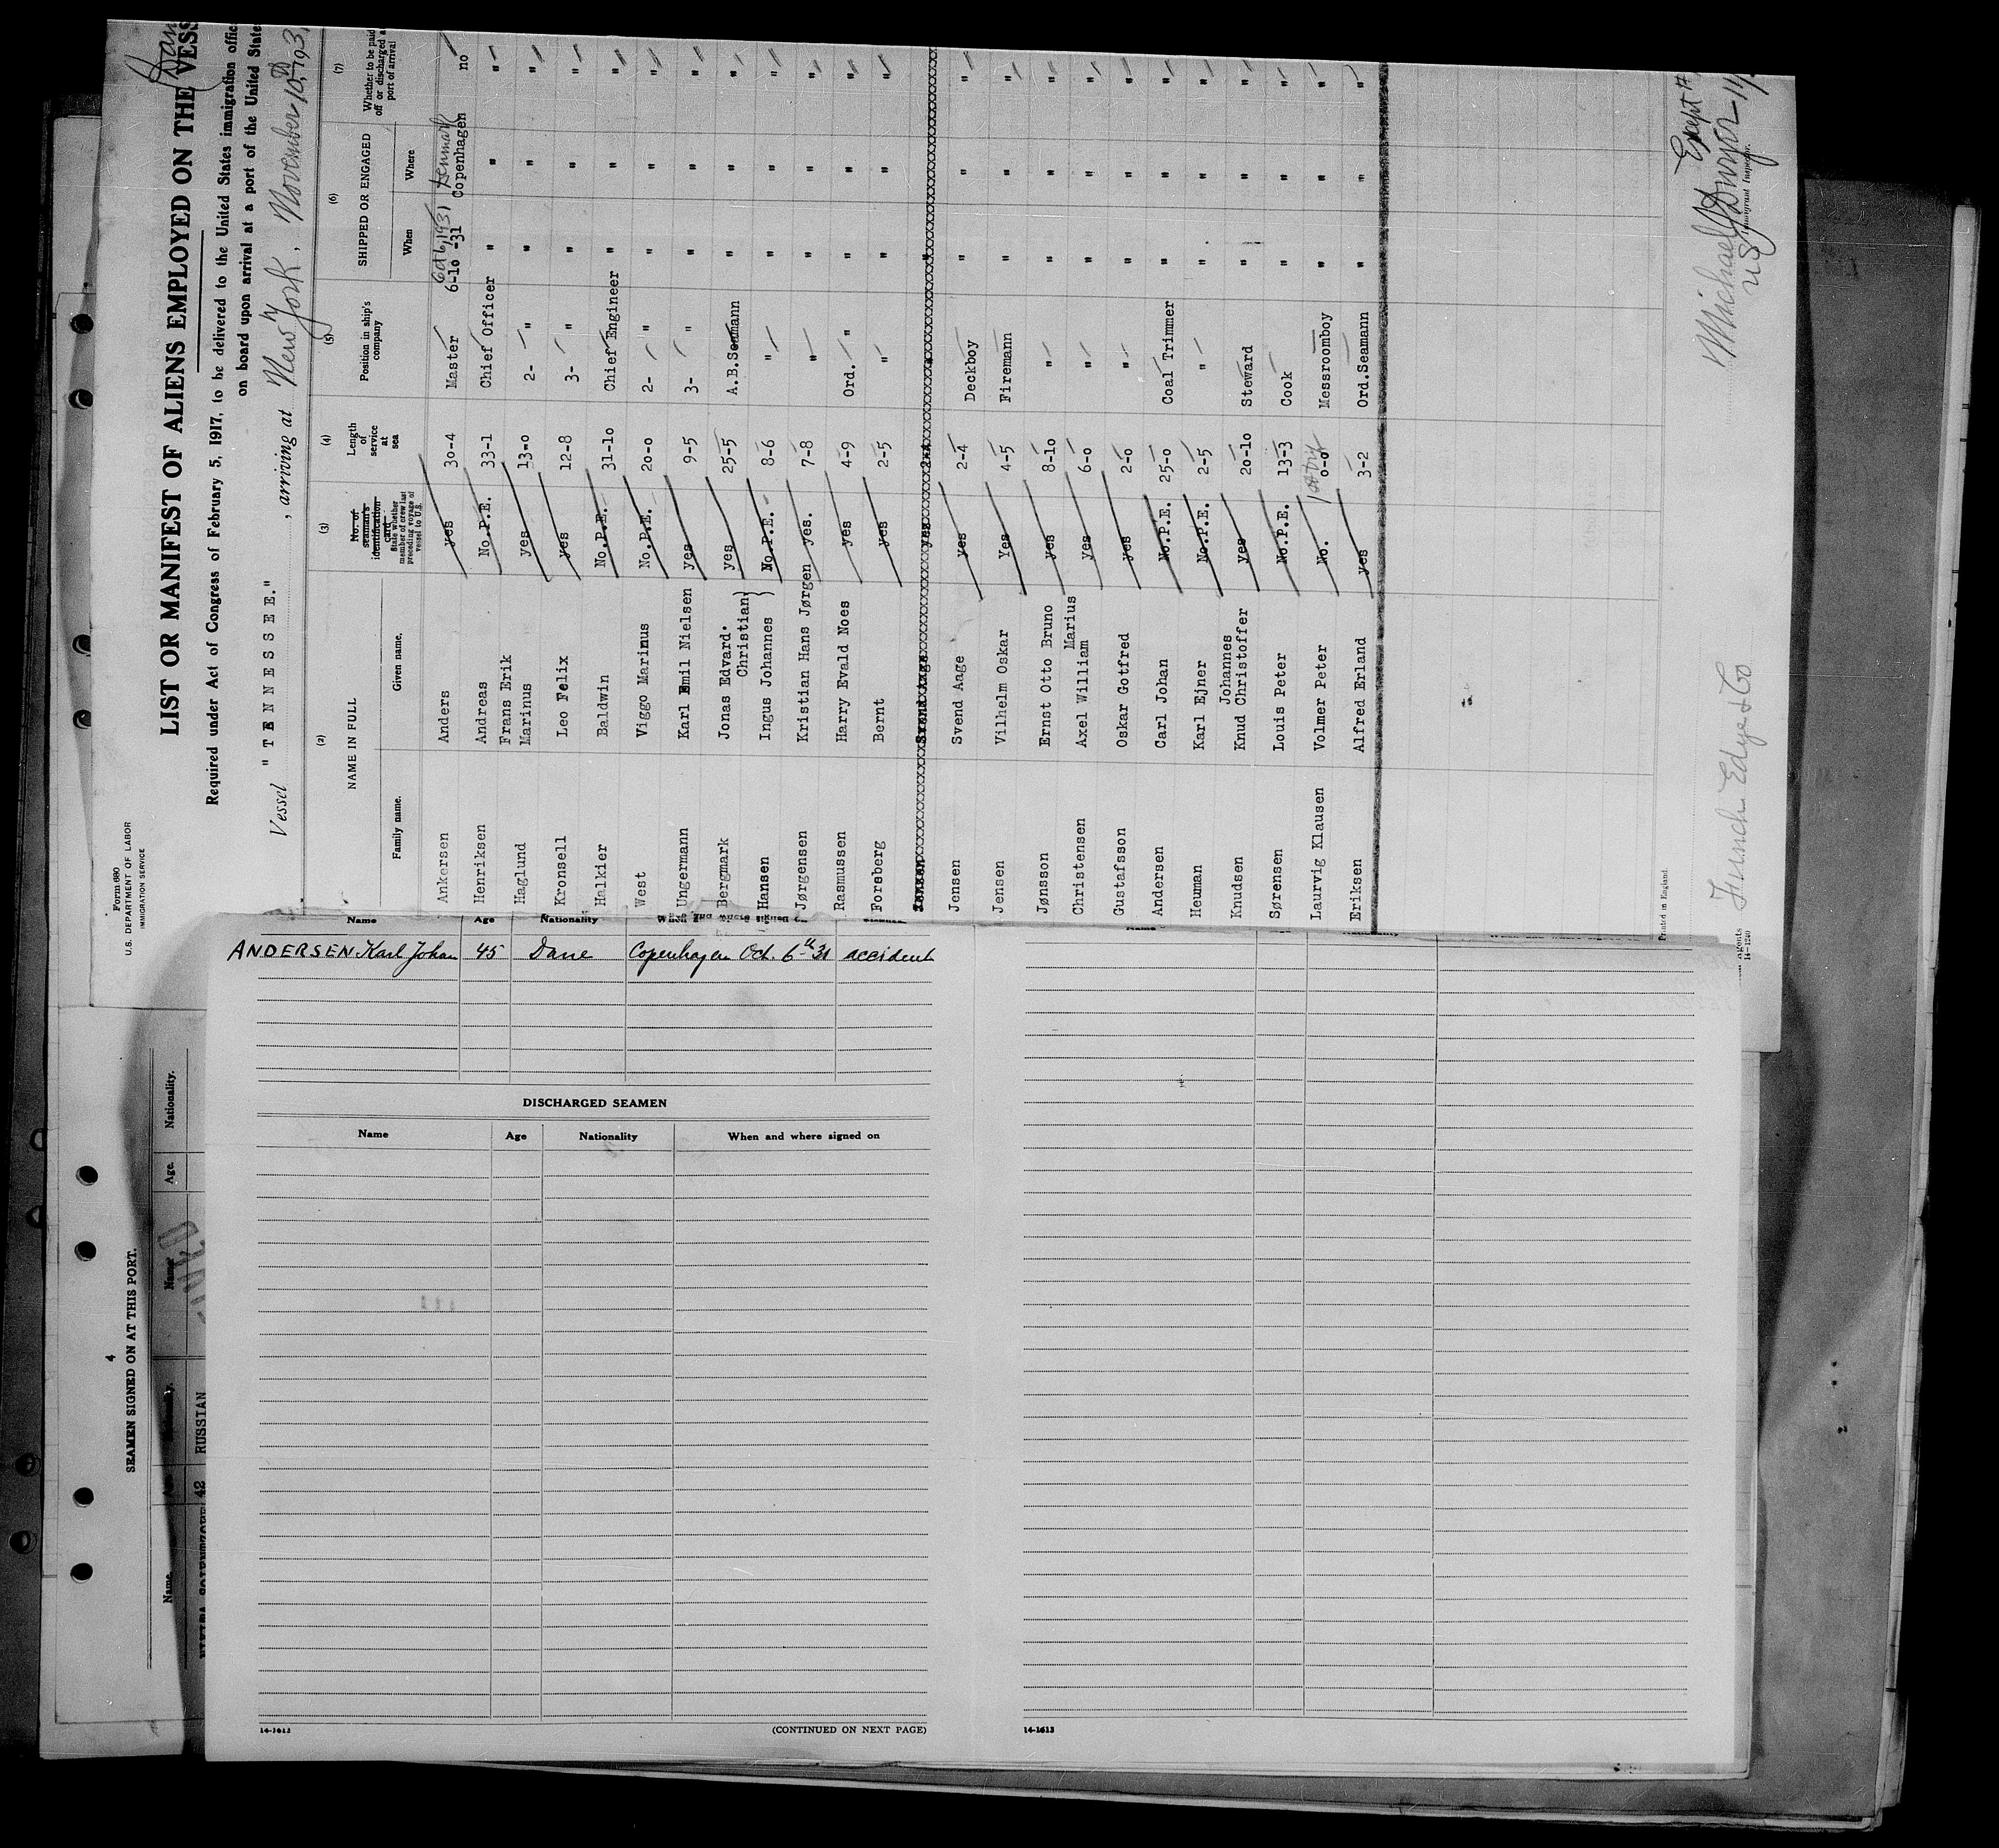 Form 680
U.S. DEPARTMENT OF LABOR
IMMIGRATION SERVICE
LIST OR MANIFEST OF ALIENS EMPLOYED ON THE VESS
Required under Act of Congress of February 5, 1917, to be delivered to the United States immigration offic
on board upon arrival at a port of the United State
Vessel "TENNESSEE." , arriving at New York, November 10, 193
(2) (3) (4) (5) (6) (7)
NAME IN FULL
Family name. Given name.
No. of seaman's identification card
State whether member of crew last preceding voyage of vessel to U.S.
Length of service at sea
Position in ship's company
SHIPPED OR ENGAGED
When Where
Whether to be paid off or discharged at port of arrival
Oct 6, 1931 Denmark
Ankersen Anders yes 30-4 Master 6-10-31 Copenhagen no
Henriksen Andreas No.P.E. 33-1 Chief Officer " " "
Haglund Frans Erik Marinus yes 13-0 2- " " " "
Kronsell Leo Felix yes 12-8 3- " " " "
Halkier Baldwin No.P.E. 31-10 Chief Engineer " " "
West Viggo Marinus No.P.E. 20-0 2- " " " "
Ungermann Karl Emil Nielsen yes 9-5 3- " " " "
Bergmark Jonas Edvard. Christian} yes 25-5 A.B.Seamann " " "
Hansen Ingus Johannes } No.P.E. 8-6 " " " "
Jørgensen Kristian Hans Jørgen yes. 7-8 " " " "
Rasmussen Harry Evald Noes yes 4-9 Ord. " " " "
Forsberg Bernt yes 2-5 " " " "
Jensen Svend Aage yes 2-4
Jensen Svend Aage yes 2-4 Deckboy " " "
Jensen Vilhelm Oskar Yes 4-5 Firemann " " "
Jønsson Ernst Otto Bruno yes 8-10 " " " "
Christensen Axel William Marius yes 6-0 " " " "
Gustafsson Oskar Gotfred yes 2-0 " " " "
Andersen Carl Johan No.P.E. 25-0 Coal Trimmer " " "
Heuman Karl Ejner No.P.E. 2-5 " " " "
Knudsen Johannes Knud Christoffer yes 20-10 Steward " " "
Sørensen Louis Peter No.P.E. 13-3 Cook " " "
Laurvig Klausen Volmer Peter No. 0-0 Messroomboy " " "
Eriksen Alfred Erland yes 3-2 Ord.Seamann " " "
Printed in England.
Funch Edye & Co
Agents
Michael J Dwyer
Immigrant Inspector.
Name Age Nationality When and where signed on
ANDERSEN Karl Johan 45 Dane Copenhagen Oct. 6th 31 accident
DISCHARGED SEAMEN
Name Age Nationality When and where signed on
14-1613 (CONTINUED ON NEXT PAGE)
14-1613
4
SEAMEN SIGNED ON AT THIS PORT.
Name. Age. Nationality. Name Age. Nationality.
42 RUSSIAN